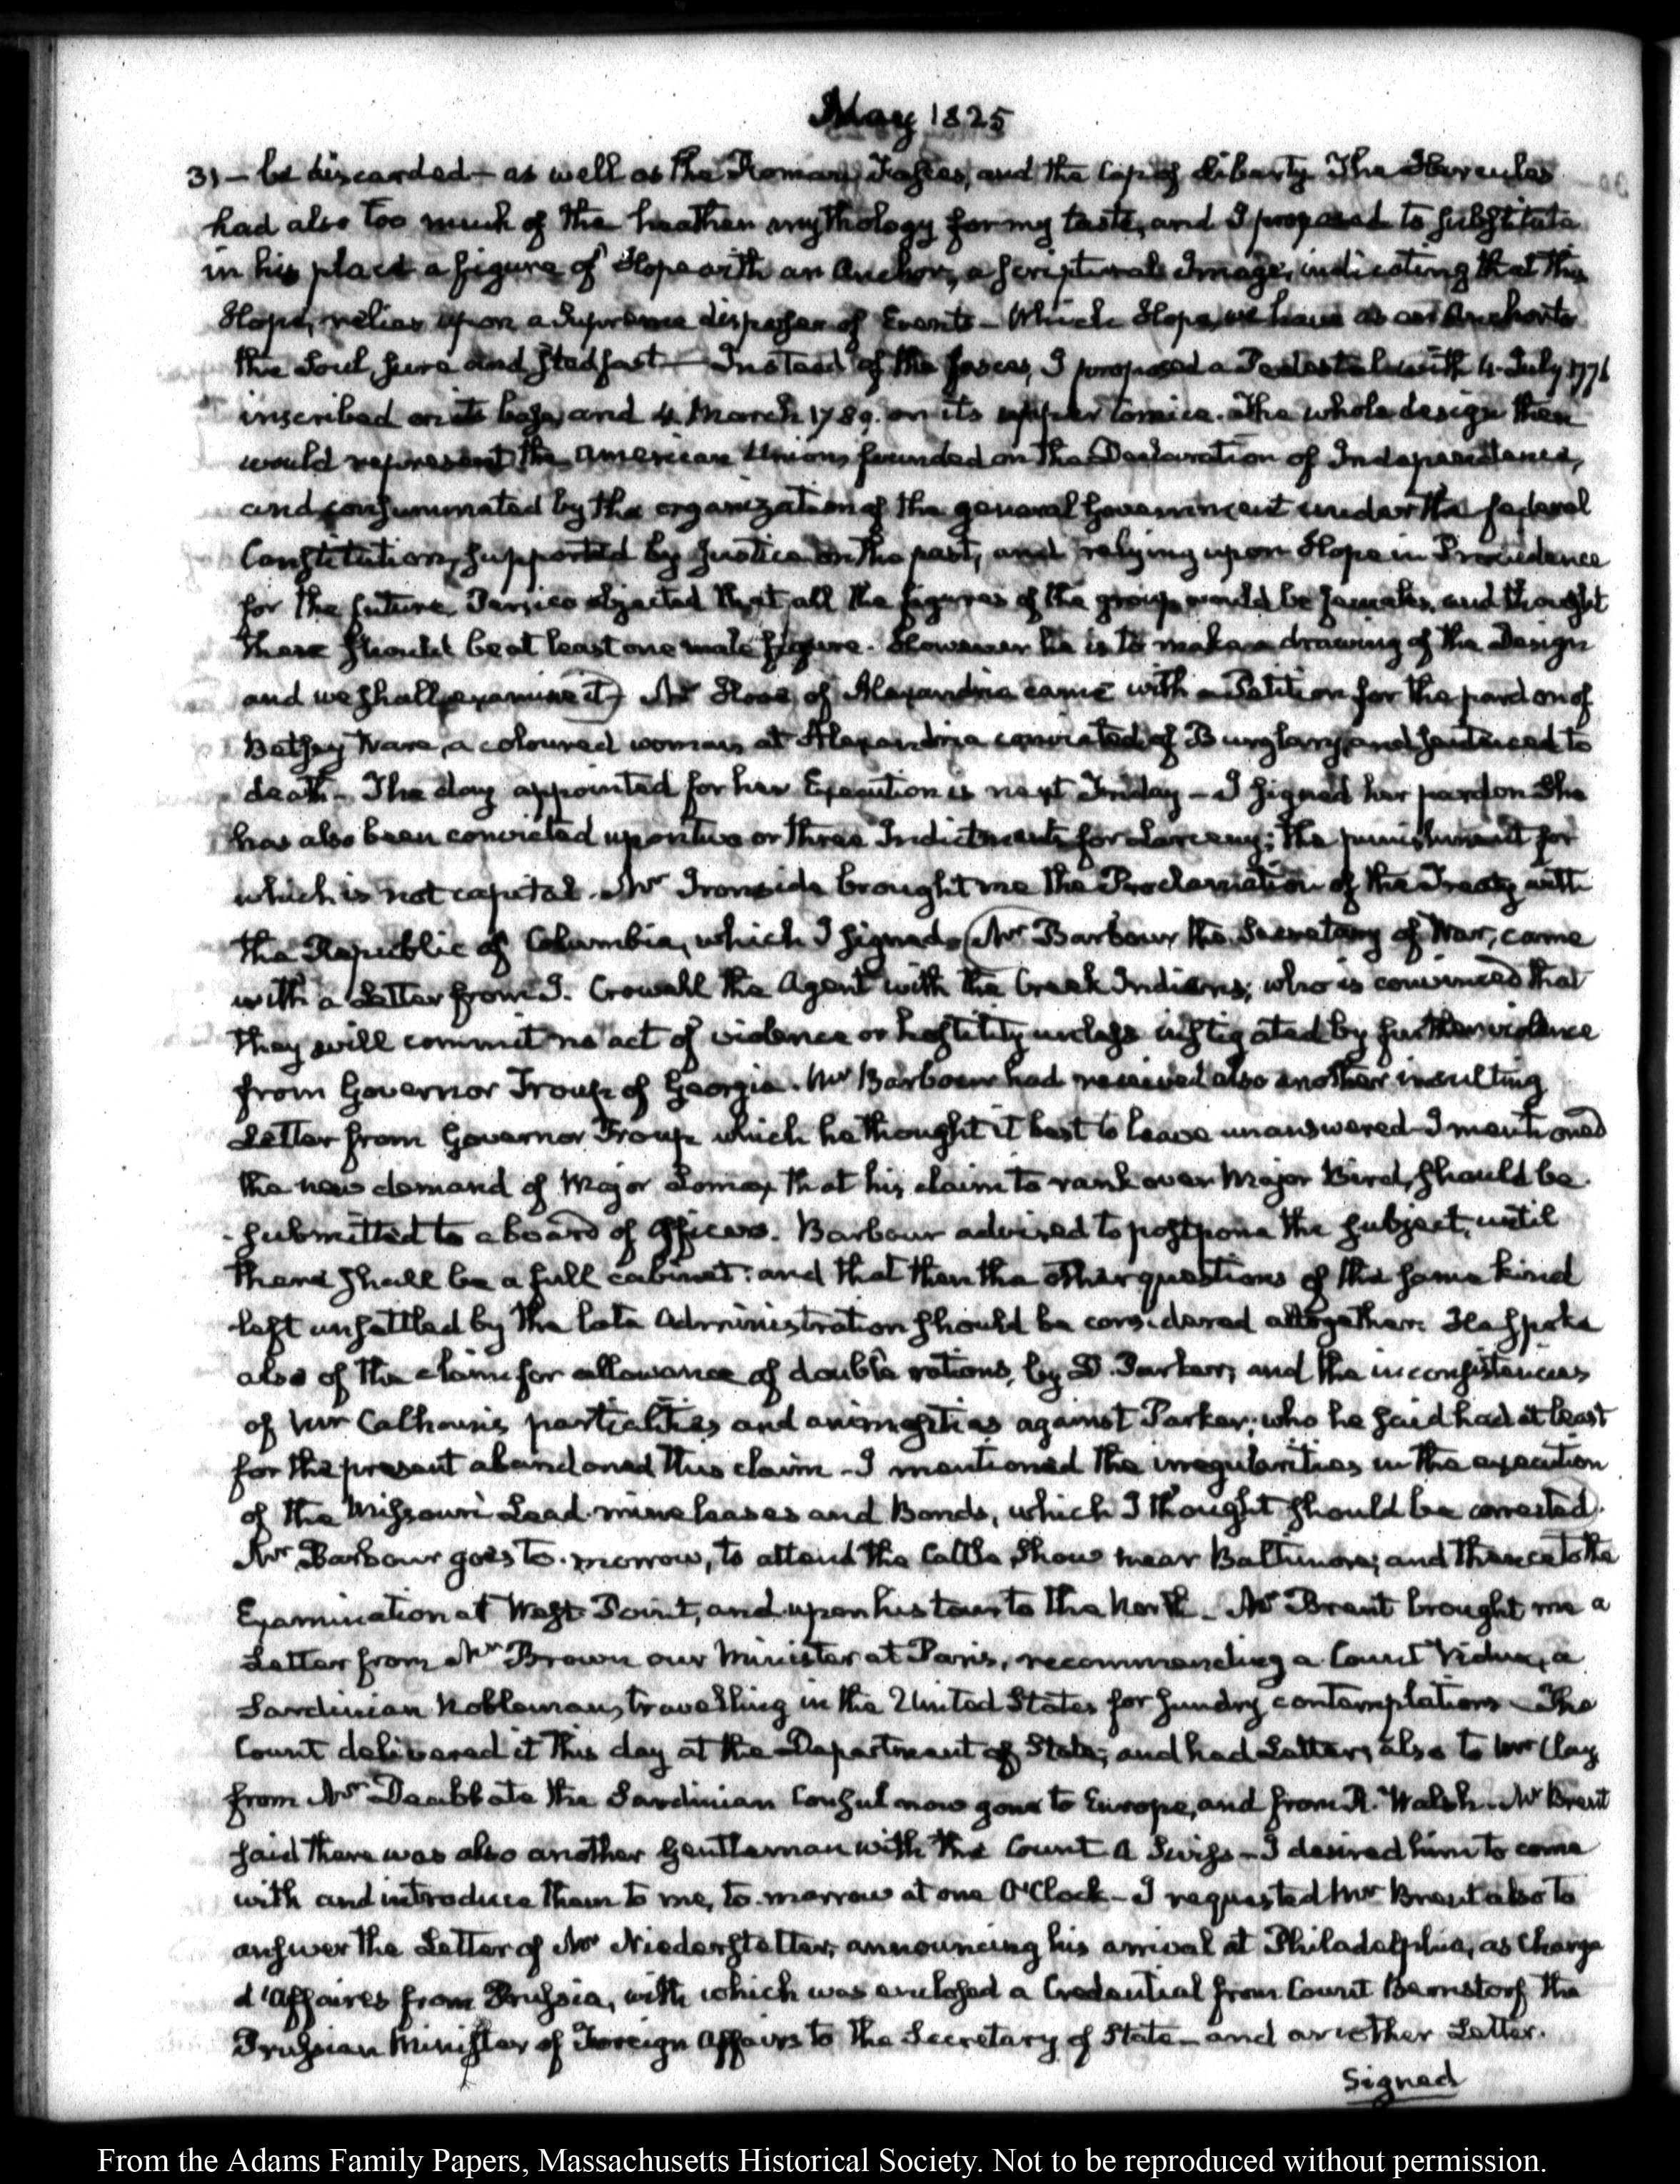 May 1825
31 — be discarded — as well as the Roman Fasces, and the Cap of Liberty. The Hercules
had also too much of the heathen mythology for my taste, and I proposed to substitute
in his place a figure of Hope with an Anchor, a scriptural Image, indicating that this
Hope, relies upon a Supreme disposer of Events — Which Hope, we have as an Anchor to
the Soul, sure and stedfast — Instead of the fasces, I proposed a Pedestal with 4. July 1776
inscribed on its base, and 4. March 1789. on its upper Cornice. The whole design then
would represent the American Union, founded on the Declaration of Independence,
and consummated by the organization of the general Government under the federal
Constitution, supported by Justice in the past, and relying upon Hope in Providence
for the future. Persico objected that all the figures of the group would be females, and thought
there should be at least one male figure. However he is to make a drawing of the Design
and we shall examine it) Mr of Alexandria came with a Petition for the pardon of
Betsey Ware, a coloured woman at Alexandria convicted of Burglary, and sentenced to
death — The day appointed for her Execution is next Friday — I signed her pardon. She
has also been convicted upon two or three Indictments for Larceny; the punishment for
which is not capital. Mr Ironside brought me the Proclamation of the Treaty with
the Republic of Columbia, which I signed. (Mr Barbour the Secretary of War, came
with a Letter from J. Crowell the Agent with the Creek Indians; who is convinced that
they will commit no act of violence or hostility unless instigated by further violence
from Governor Troup of Georgia. Mr Barbour had received also another insulting
Letter from Governor Troup which he thought it best to leave unanswered — I mentioned
the new demand of Major Lomax that his claim to rank over Major Bird, should be
submitted to a board of Officers. Barbour advised to postpone the subject, until
there shall be a full cabinet: and that then the other questions of the same kind
left unsettled by the late Administration should be considered altogether. He spoke
also of the claim for allowance of double rations, by D. Parker; and the inconsistencies
of Mr Calhoun's partialities and animosities against Parker; who he said had at least
for the present abandoned this claim — I mentioned the irregularities in the execution
of the Missouri Lead-mine leases and Bonds, which I thought should be corrected.
Mr Barbour goes to-morrow, to attend the Cattle Show near Baltimore; and thence to the
Examination at West-Point, and upon his tour to the North — Mr Brent brought me a
Letter from Mr Brown our Minister at Paris, recommending a Count Vidua, a
Sardinian Nobleman, travelling in the United States for sundry contemplations — The
Count delivered it this day at the Department of State; and had Letters also to Mr Clay
from Mr Deabbate the Sardinian Consul now gone to Europe, and from R. Walsh — Mr Brent
said there was also another Gentleman with the Count — A Swiss — I desired him to come
with and introduce them to me, to-morrow at one O'Clock — I requested Mr Brent also to
answer the Letter of Mr Niederstetter, announcing his arrival at Philadelphia, as Charge
d'Affaires from Prussia, with which was enclosed a Credential from Count Bernstorf the
Prussian Minister of Foreign Affairs to the Secretary of State — and another Letter.
Signed
From the Adams Family Papers, Massachusetts Historical Society. Not to be reproduced without permission.